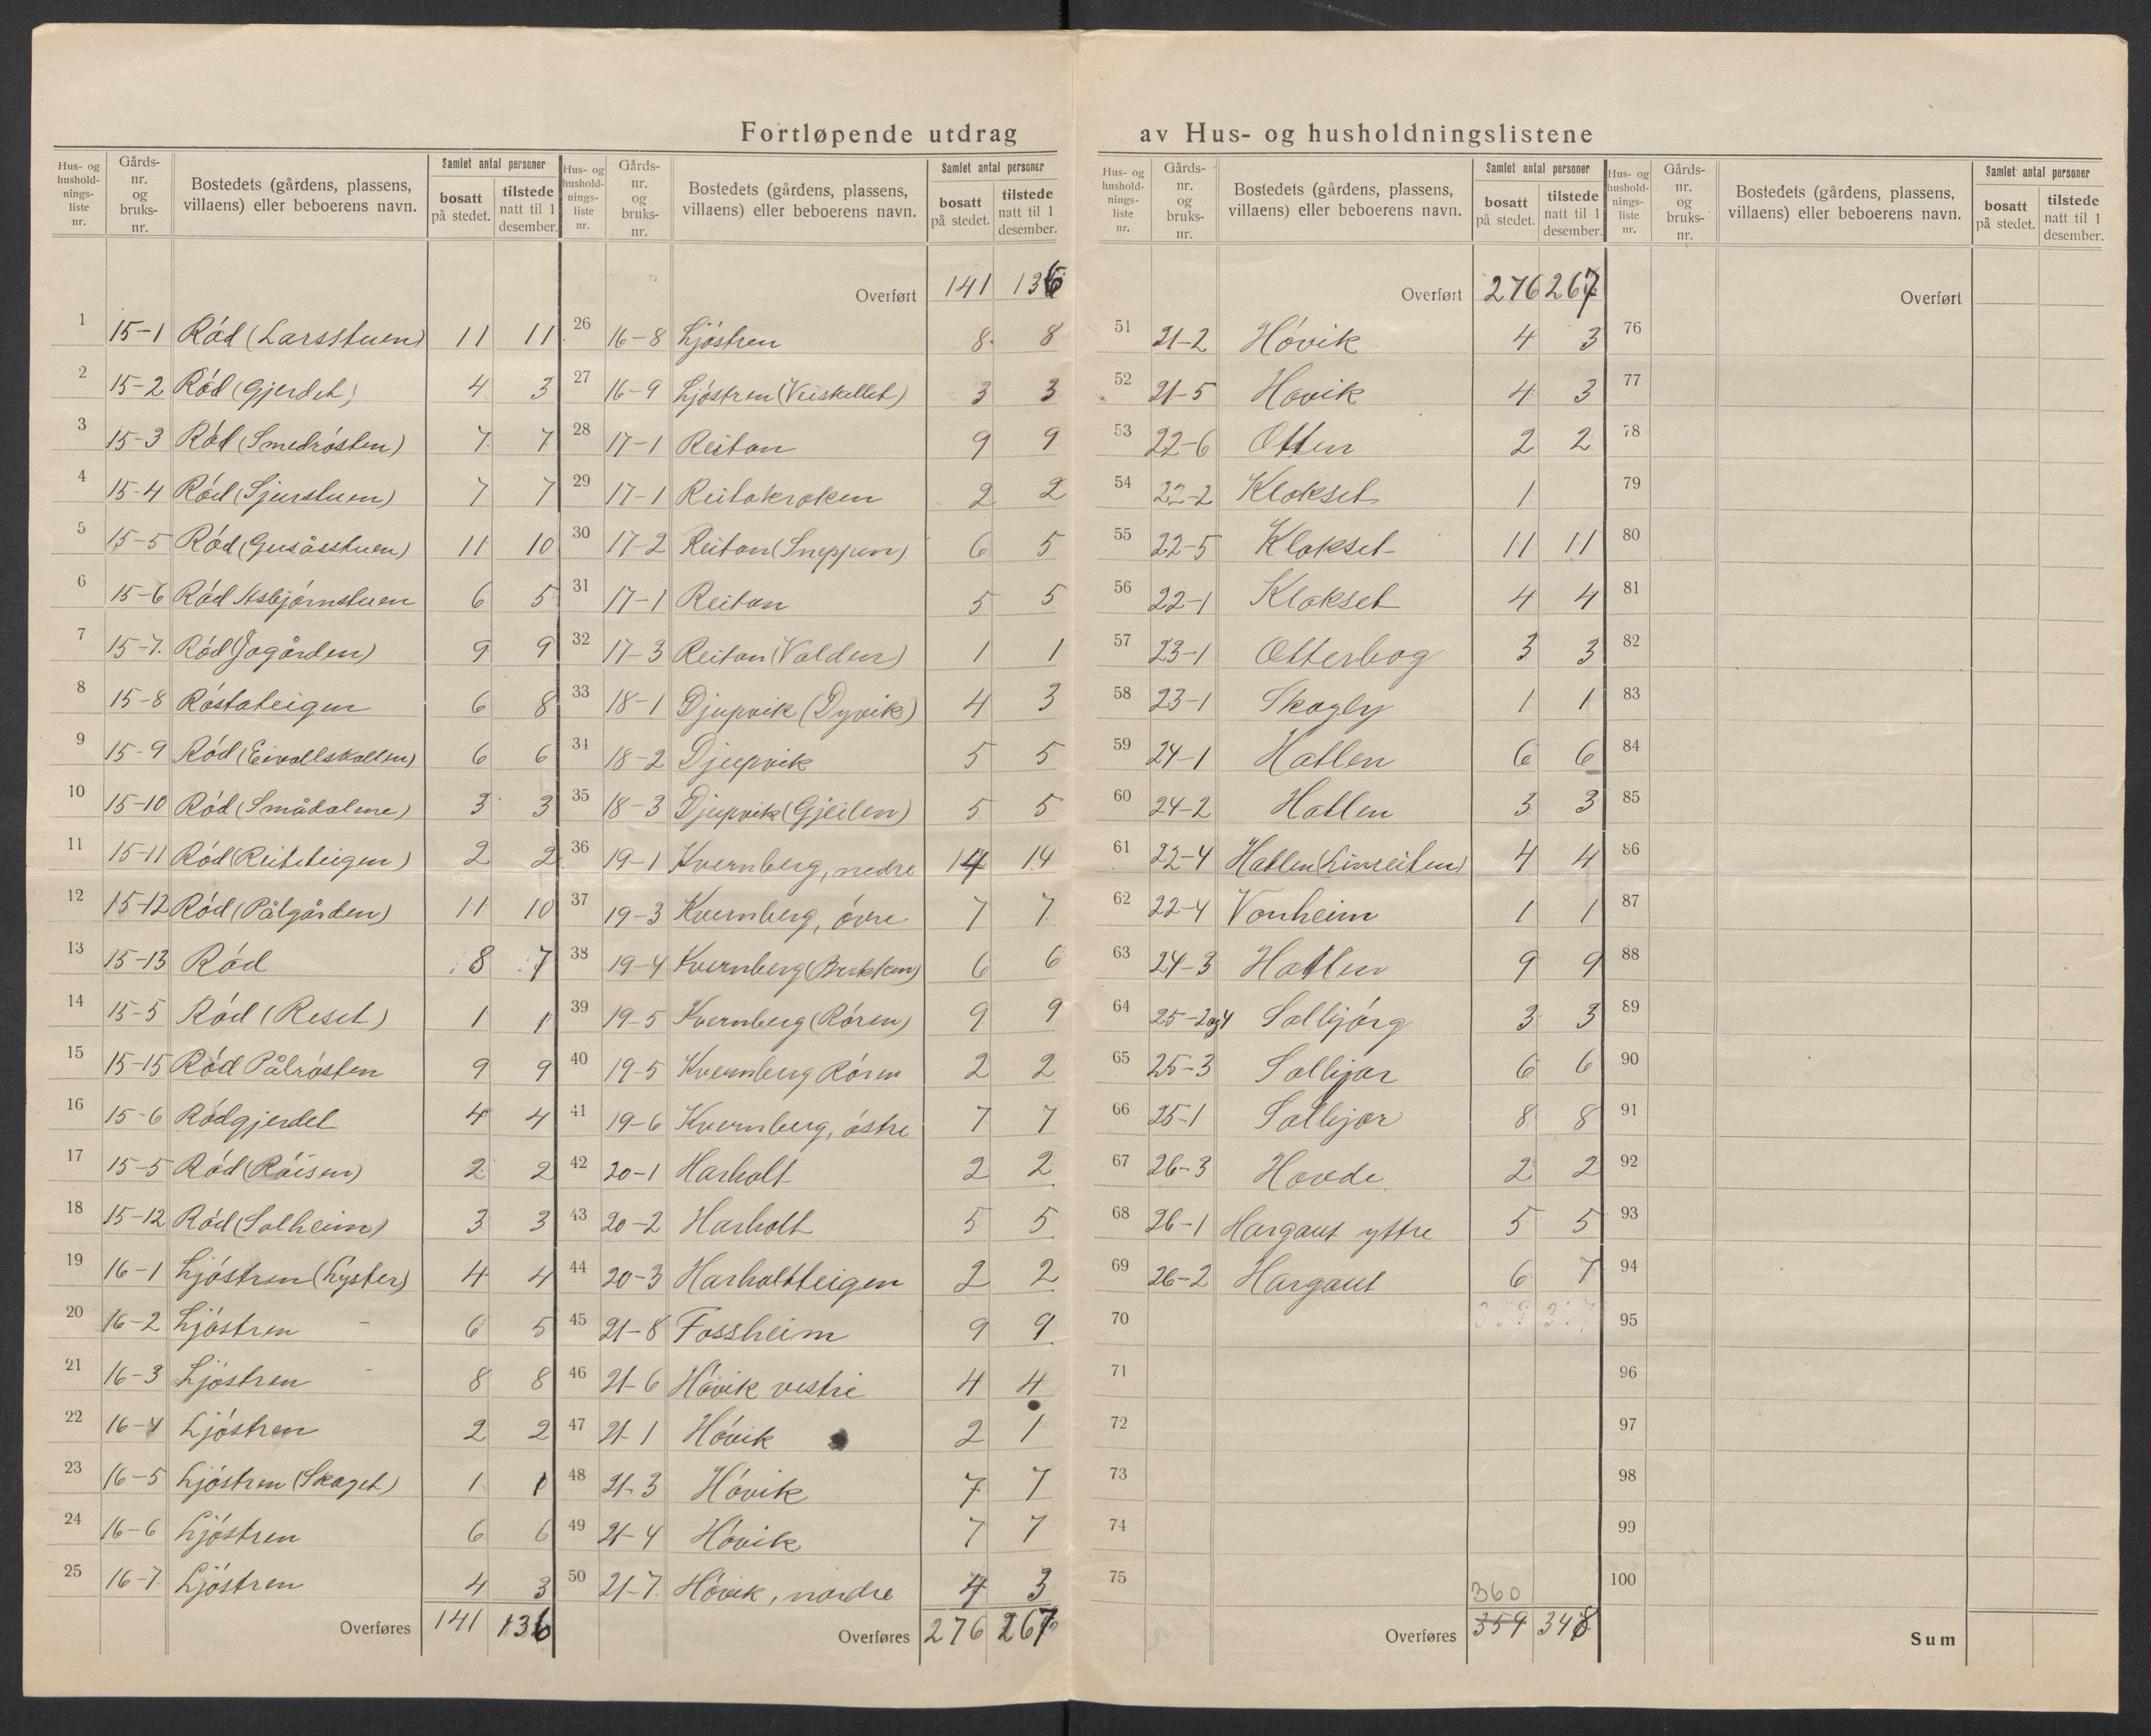 Fortløpende utdrag av Hus- og husholdningslistene
Hus- og hushold-nings-liste nr. | Gårds-nr. og bruks-nr. | Bostedets (gårdens, plassens, villaens) eller beboerens navn. | Samlet antal personer | bosatt på stedet. | tilstede natt til 1 desember.
1 15-1 Ród (Larsstuen) 11 11
2 15-2 Ród (Gjerdet) 4 3
3 15-3 Ród (Smedrósten) 7 7
4 15-4 Ród (Sjurstuen) 7 7
5 15-5 Ród (Gusåsstuen) 11 10
6 15-6 Ród Asbjórnstuen 6 5
7 15-7. Ród (Jogården) 9 9
8 15-8 Róstateigen 6 8
9 15-9 Ród (Eivollskallen) 6 6
10 15-10 Ród (Smådalene) 3 3
11 15-11 Ród (Reiteteigen) 2 2
12 15-12 Ród (Pålgården) 11 10
13 15-13 Ród 8 7
14 15-5 Ród (Reset) 1 1
15 15-15 Ród Pålrósten 9 9
16 15-6 Ródgjerdet 4 4
17 15-5 Ród (Róisen) 2 2
18 15-12 Ród (Solheim) 3 3
19 16-1 Ljóstren (Lyster) 4 4
20 16-2 Ljóstren - 6 5
21 16-3 Ljóstren - 8 8
22 16-4 Ljóstren 2 2
23 16-5 Ljóstren (Skaget) 1 1
24 16-6 Ljóstren 6 6
25 16-7 Ljóstren 4 3
Overføres 141 136
Hus- og hushold-nings-liste nr. | Gårds-nr. og bruks-nr. | Bostedets (gårdens, plassens, villaens) eller beboerens navn. | Samlet antal personer | bosatt på stedet. | tilstede natt til 1 desember.
Overført 141 136
26 16-8 Ljóstren 8 8
27 16-9 Ljóstren (Veiskellet) 3 3
28 17-1 Reitan 9 9
29 17-1 Reitakroken 2 2
30 17-2 Reitan (Sneppen) 6 5
31 17-1 Reitan 5 5
32 17-3 Reitan (Valden) 1 1
33 18-1 Djupvik (Dyvik) 4 3
34 18-2 Djupvik 5 5
35 18-3 Djupvik (Gjeilen) 5 5
36 19-1 Kvernberg, nedre 14 14
37 19-3 Kvernberg, óvre 7 7
38 19-4 Kvernberg (Brekken) 6 6
39 19-5 Kvernberg (Róren) 9 9
40 19-5 Kvernberg Róren 2 2
41 19-6 Kvernberg, óstre 7 7
42 20-1 Harholt 2 2
43 20-2 Harholt 5 5
44 20-3 Harholtteigen 2 2
45 21-8 Fossheim 9 9
46 21-6 Hóvik vestre 4 4
47 21-1 Hóvik 2 1
48 21-3 Hóvik 7 7
49 21-4 Hóvik 7 7
50 21-7. Hóvik, nordre 4 3
Overføres 276 267
Hus- og hushold-nings-liste nr. | Gårds-nr. og bruks-nr. | Bostedets (gårdens, plassens, villaens) eller beboerens navn. | Samlet antal personer | bosatt på stedet. | tilstede natt til 1 desember.
Overført 276 267
51 21-2 Hóvik 4 3
52 21-5 Hovik 4 3
53 22-6 Otten 2 2
54 22-2 Klokset 1
55 22-5 Klokset 11 11
56 22-1 Klokset 4 4
57 23-1 Otterbog 3 3
58 23-1 Skogly 1 1
59 24-1 Hatlen 6 6
60 24-2 Hatlen 3 3
61 22-4 Hatlen (Linreiten) 4 4
62 22-4 Vonheim 1 1
63 24-3 Hatlen 9 9
64 25-2og4 Solbjórg 3 3
65 25-3 Solbjør 6 6
66 25-1 Solbjør 8 8
67 26-3 Hovde 2 2
68 26-1 Hargaut yttre 5 5
69 26-2 Hargaut 6 7
70
71
72
73
74
75 360
Overføres 359 348
Hus- og hushold-nings-liste nr. | Gårds-nr. og bruks-nr. | Bostedets (gårdens, plassens, villaens) eller beboerens navn. | Samlet antal personer | bosatt på stedet. | tilstede natt til 1 desember.
Overført
76
77
78
79
80
81
82
83
84
85
86
87
88
89
90
91
92
93
94
95
96
97
98
99
100
Sum